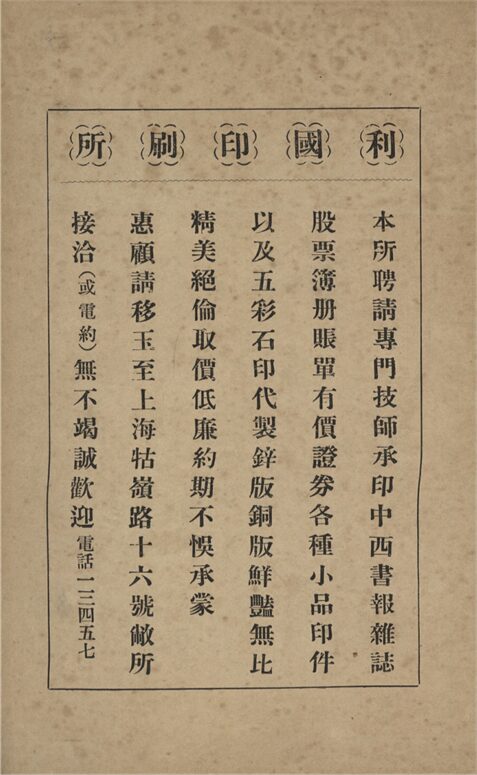 利國印刷所
本所聘請專門技師承印中西書報雜誌
股票簿册賬單有價證券各種小品印件
以及五彩石印代製鋅版銅版鮮豔無比
精美絕倫取價低廉約期不悞承蒙
惠顧請移玉至上海牯嶺路十六號敝所
接洽(或電約)無不竭誠歡迎電話一三四五七